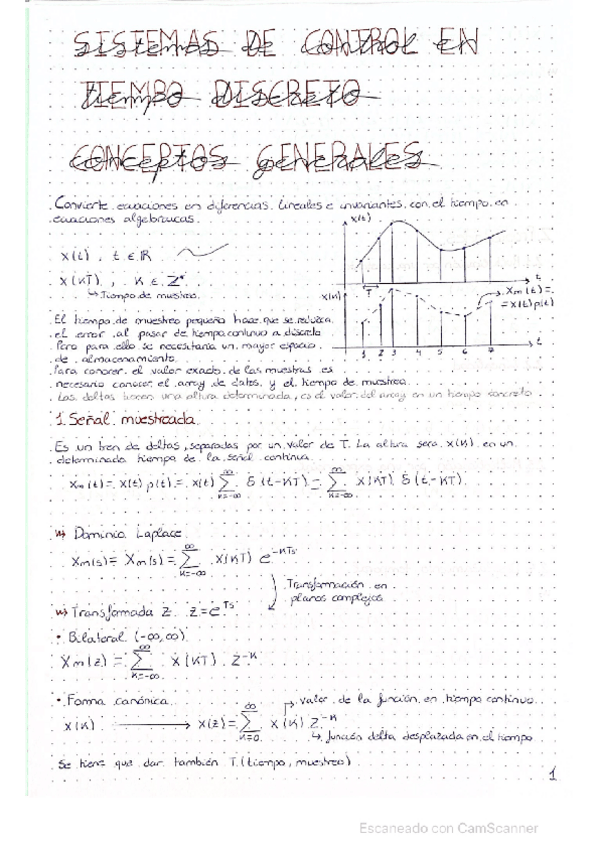 SISTEMAS DE CONTROL EN
TIEMPO DISCRETO
CONCEPTOS GENERALES
Convierte ecuaciones en diferencias lineales e invariantes con el tiempo en
ecuaciones algebraicas.
x(t), t ∈ ℝ
x(KT), K ∈ Z⁺
↳ Tiempo de muestreo
x(s)
t
T
x(K)
Xm(t)=
=x(t)p(t)
1 2 3 4 5 6 7
t
El tiempo de muestreo pequeño hace que se reduzca
el error al pasar de tiempo continuo a discreto
Pero para ello se necesitaría un mayor espacio
de almacenamiento.
Para conocer el valor exacto de las muestras es
necesario conocer el array de datos y el tiempo de muestreo
Las deltas tienen una altura determinada, es el valor del array en un tiempo concreto
1. Señal muestreada
Es un tren de deltas, separadas por un valor de T. La altura será x(K) en un
determinado tiempo de la señal continua
Xm(t) = x(t) p(t) = x(t) ∑ δ(t-KT) = ∑ x(KT) δ(t-KT)
∞ K=-∞ ∞ K=-∞
Dominio Laplace
Xm(s) = Xm(s) = ∑ x(KT) e^-KTs
∞ K=-∞
Transformación en
planos complejos
Transformada Z z = e^Ts
• Bilateral (-∞,∞)
Xm(z) = ∑ x(KT) z^-K
∞ K=-∞
• Forma canónica
valor de la función en tiempo continuo
x(K) → X(z) = ∑ x(K) z^-K
∞ K=0
↳ función delta desplazada en el tiempo
Se tiene que dar también T (tiempo, muestreo)
1
Escaneado con CamScanner